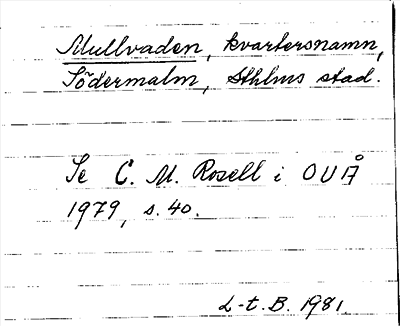 Mullvaden, kvartersnamn,
Södermalm, Sthlms stad.
Se C. M. Rosell i OUÅ
1979, s. 40.
L-t. B. 1981.